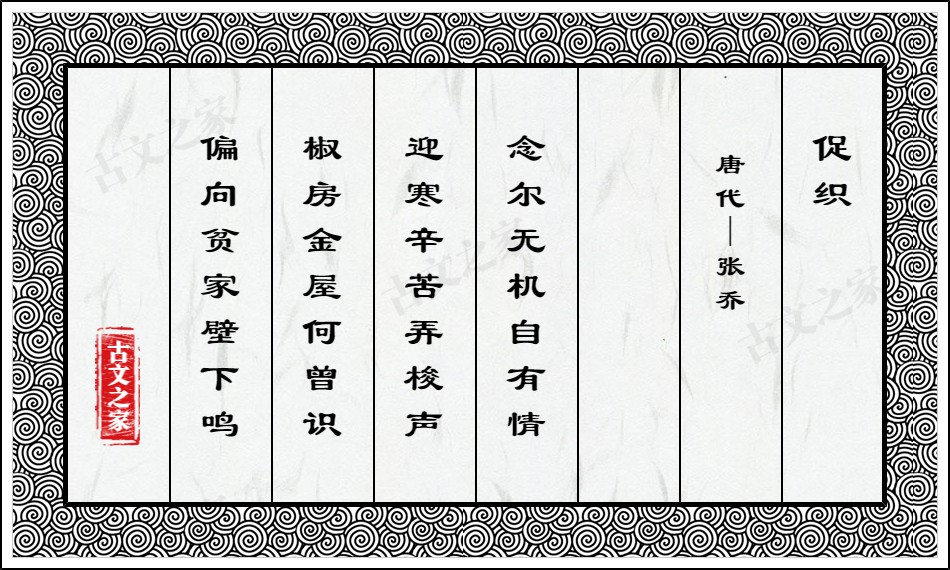 促织
唐代—张乔
念尔无机自有情
迎寒辛苦弄梭声
椒房金屋何曾识
偏向贫家壁下鸣
古文之家
古文之家
古文之家
古文之家